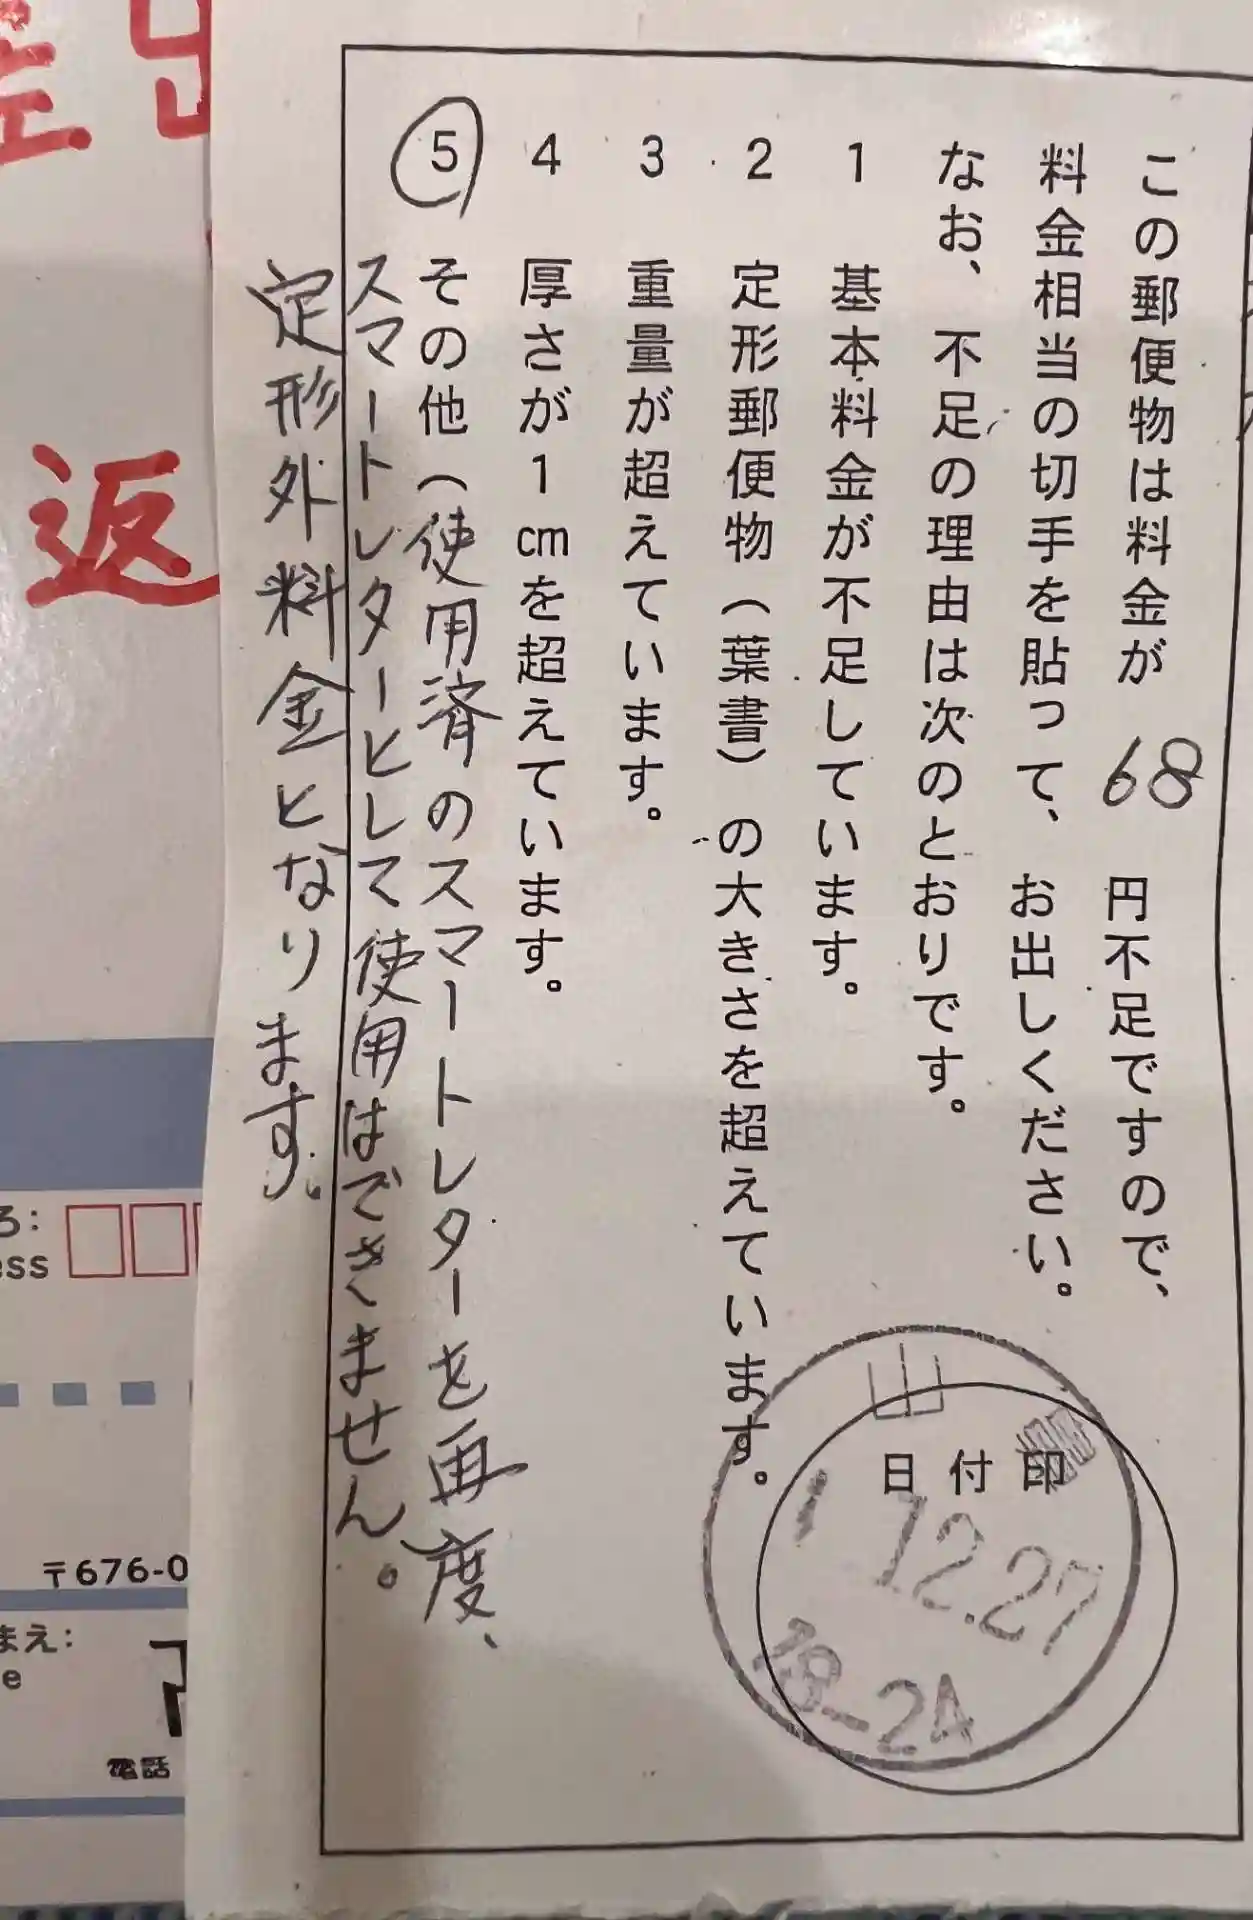 この郵便物は料金が 68 円不足ですので、
料金相当の切手を貼って、お出しください。
なお、不足の理由は次のとおりです。
1 基本料金が不足しています。
2 定形郵便物(葉書)の大きさを超えています。
3 重量が超えています。
4 厚さが1cmを超えています。
5 その他(使用済のスマートレターを再度、
スマートレターとして使用はできません。
定形外料金となります。
日付印
1.12.27
18-24
返
〒676-0
電話